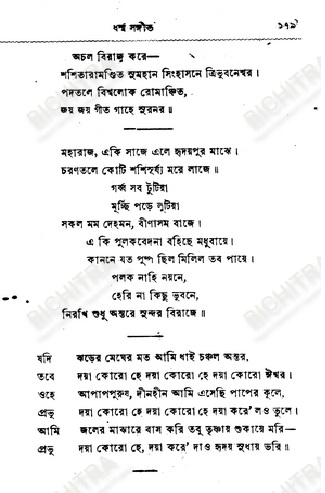 ধর্ম্ম সঙ্গীত ১৭৯
অচল বিরাজ করে—
শশিতারামণ্ডিত সুমহান সিংহাসনে ত্রিভুবনেশ্বর।
পদতলে বিশ্বলোক রোমাঞ্চিত,
জয় জয় গীত গাহে সুরনর॥
মহারাজ, একি সাজে এলে হৃদয়পুর মাঝে।
চরণতলে কোটি শশিসূর্য্য মরে লাজে॥
গর্ব্ব সব টুটিয়া
মূর্চ্ছি পড়ে লুটিয়া
সকল মম দেহমন, বীণাসম বাজে॥
এ কি পুলকবেদনা বহিছে মধুবায়ে।
কাননে যত পুষ্প ছিল মিলিল তব পায়ে।
পলক নাহি নয়নে,
হেরি না কিছু ভুবনে,
নিরখি শুধু অন্তরে সুন্দর বিরাজে॥
যদি ঝড়ের মেঘের মত আমি ধাই চঞ্চল অন্তর,
তবে দয়া কোরো হে দয়া কোরো হে দয়া কোরো ঈশ্বর।
ওহে অপাপপুরুষ, দীনহীন আমি এসেছি পাপের কূলে,
প্রভু দয়া কোরো হে দয়া কোরো হে দয়া করে' লও তুলে।
আমি জলের মাঝারে বাস করি তবু তৃষ্ণায় শুকায়ে মরি—
প্রভু দয়া কোরো হে, দয়া করে' দাও হৃদয় সুধায় ভরি॥
BICHITRA